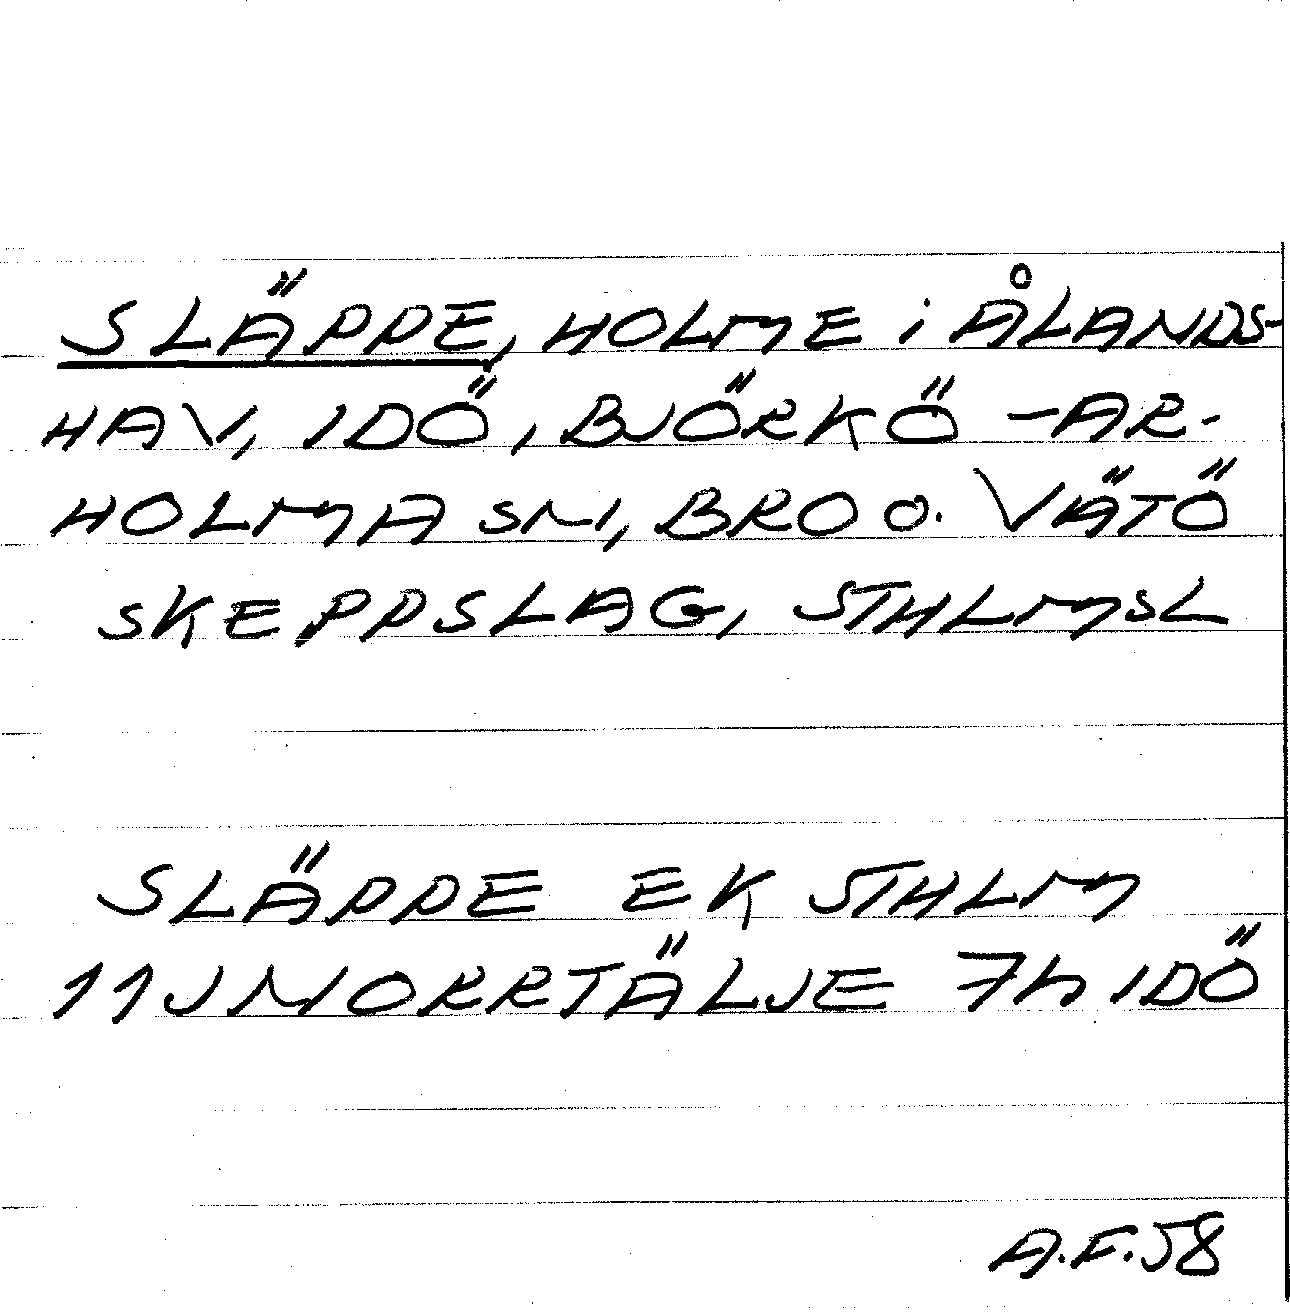 SLÄPPE, HOLME i ÅLANDS-
HAV, IDÖ, BJÖRKÖ-AR-
HOLMA SN, BRO O. VÄTÖ
SKEPPSLAG, STHLMSL
SLÄPPE EK STHLM
11J NORRTÄLJE 7h IDÖ
A.F. 58